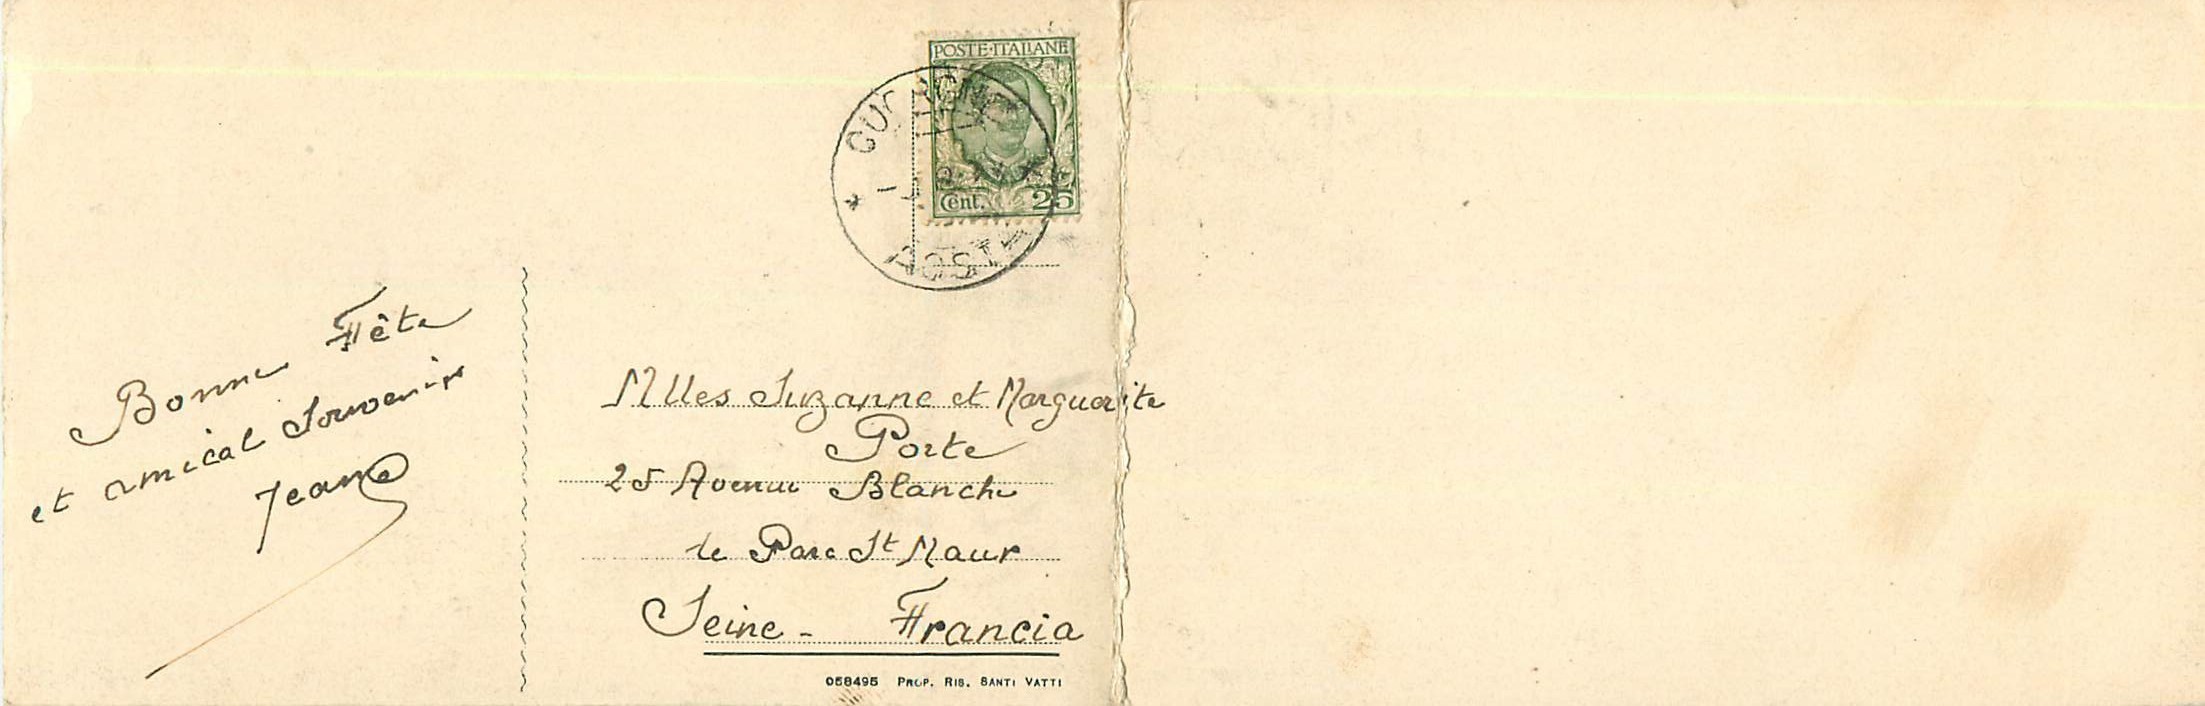 POSTE·ITALIANE
Cent. 25
AOSTA
Bonne Fête
et amical Souvenir
Jeanne
Mlles Suzanne et Marguerite
Porte
25 Avenue Blanche
le Parc St Maur
Seine - Francia
058495 PROP. RIS. SANTI VATTI